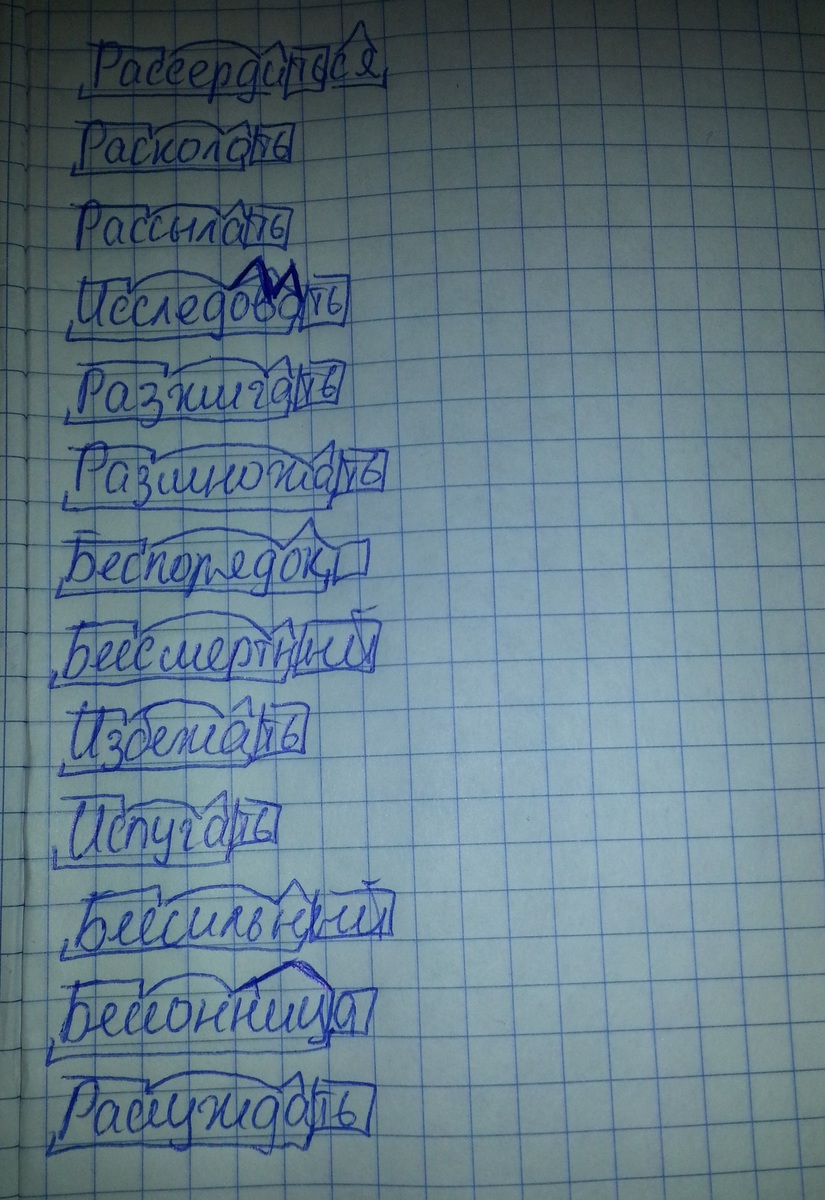 Рассердиться
Расколоть
Рассылать
Исследовать
Разжигать
Размножать
Беспорядок
Бессмертный
Избежать
Испугать
Бессильный
Бессонница
Рассуждать